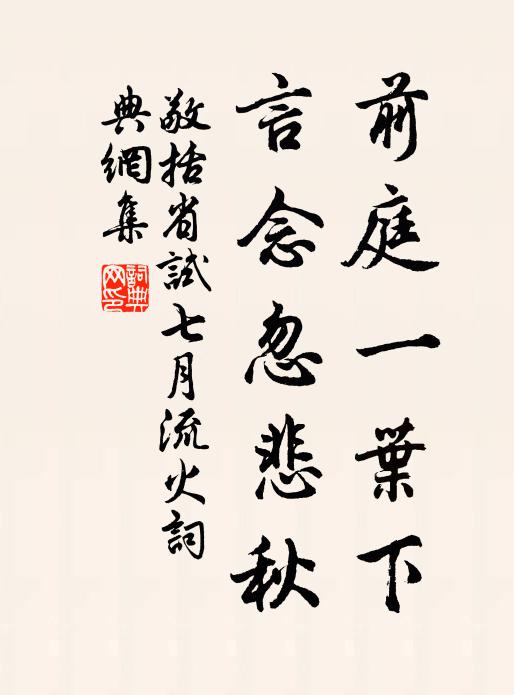 前庭一葉下
言念忽悲秋
敬括省試七月流火詞
典網集
詞典網印